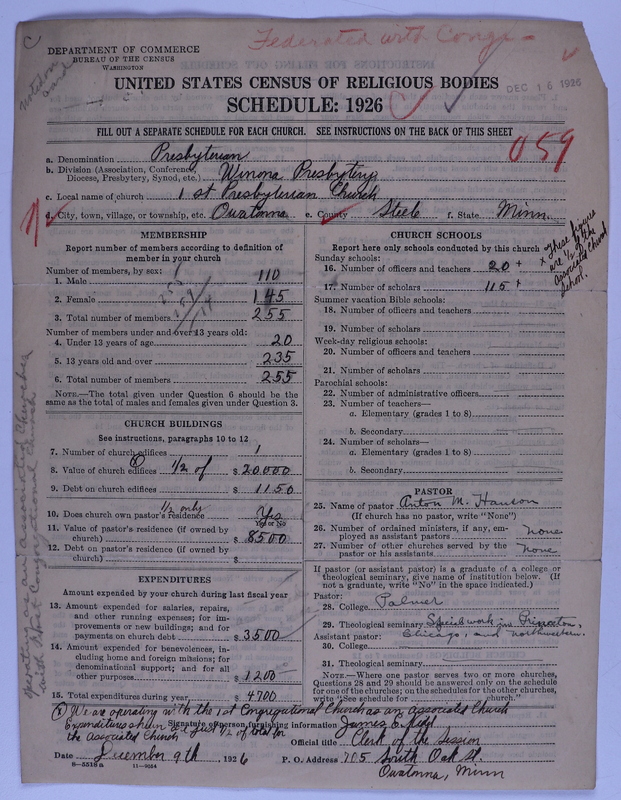 C
Federated with Cong -
DEPARTMENT OF COMMERCE
BUREAU OF THE CENSUS
WASHINGTON
Noted on card
UNITED STATES CENSUS OF RELIGIOUS BODIES
SCHEDULE: 1926
DEC 16 1926
FILL OUT A SEPARATE SCHEDULE FOR EACH CHURCH. SEE INSTRUCTIONS ON THE BACK OF THIS SHEET
059
a. Denomination Presbyterian
b. Division (Association, Conference, Diocese, Presbytery, Synod, etc.) Winona Presbytery
c. Local name of church 1st Presbyterian Church
d. City, town, village, or township, etc. Owatonna e. County Steele f. State Minn.
MEMBERSHIP
Report number of members according to definition of member in your church
Number of members, by sex:
1. Male 110
2. Female 145
3. Total number of members 255
Number of members under and over 13 years old:
4. Under 13 years of age 20
5. 13 years old and over 235
6. Total number of members 255
NOTE.—The total given under Question 6 should be the same as the total of males and females given under Question 3.
CHURCH BUILDINGS
See instructions, paragraphs 10 to 12
7. Number of church edifices 1
8. Value of church edifices 1/2 of $ 20000
9. Debt on church edifices $ 1150
10. Does church own pastor's residence 1/2 only Yes
Yes or No
11. Value of pastor's residence (if owned by church) $ 8500
12. Debt on pastor's residence (if owned by church) $
EXPENDITURES
Amount expended by your church during last fiscal year
13. Amount expended for salaries, repairs, and other running expenses; for improvements or new buildings; and for payments on church debt $ 3500
14. Amount expended for benevolences, including home and foreign missions; for denominational support; and for all other purposes $ 1200
15. Total expenditures during year $ 4700
CHURCH SCHOOLS
Report here only schools conducted by this church
+ These figures are 1/2 of the Associated Church School.
Sunday schools:
16. Number of officers and teachers 20 +
17. Number of scholars 115 +
Summer vacation Bible schools:
18. Number of officers and teachers
19. Number of scholars
Week-day religious schools:
20. Number of officers and teachers
21. Number of scholars
Parochial schools:
22. Number of administrative officers
23. Number of teachers—
a. Elementary (grades 1 to 8)
b. Secondary
24. Number of scholars—
a. Elementary (grades 1 to 8)
b. Secondary
PASTOR
25. Name of pastor Anton M. Hanson
(If church has no pastor, write "None")
26. Number of ordained ministers, if any, employed as assistant pastors none
27. Number of other churches served by the pastor or his assistants none
If pastor (or assistant pastor) is a graduate of a college or theological seminary, give name of institution below. (If not a graduate, write "No" in the space indicated.)
Pastor:
28. College Palmer
29. Theological seminary Special work in Princeton, Chicago, and Northwestern.
Assistant pastor:
30. College
31. Theological seminary
NOTE.—Where one pastor serves two or more churches, Questions 28 and 29 should be answered only on the schedule for one of the churches; on the schedules for the other churches, write "See schedule for church."
We are operating with the 1st Congregational Church as an Associated Church
Expenditures shown are just 1/2 of total for the Associated Church
Signature of person furnishing information James E.
Official title Clerk of the Session
Date December 9th, 1926 P. O. Address 705 South Oak St.
Owatonna, Minn
8-5518a 11-9034
Operating as an associated Churches with First Congregational Church